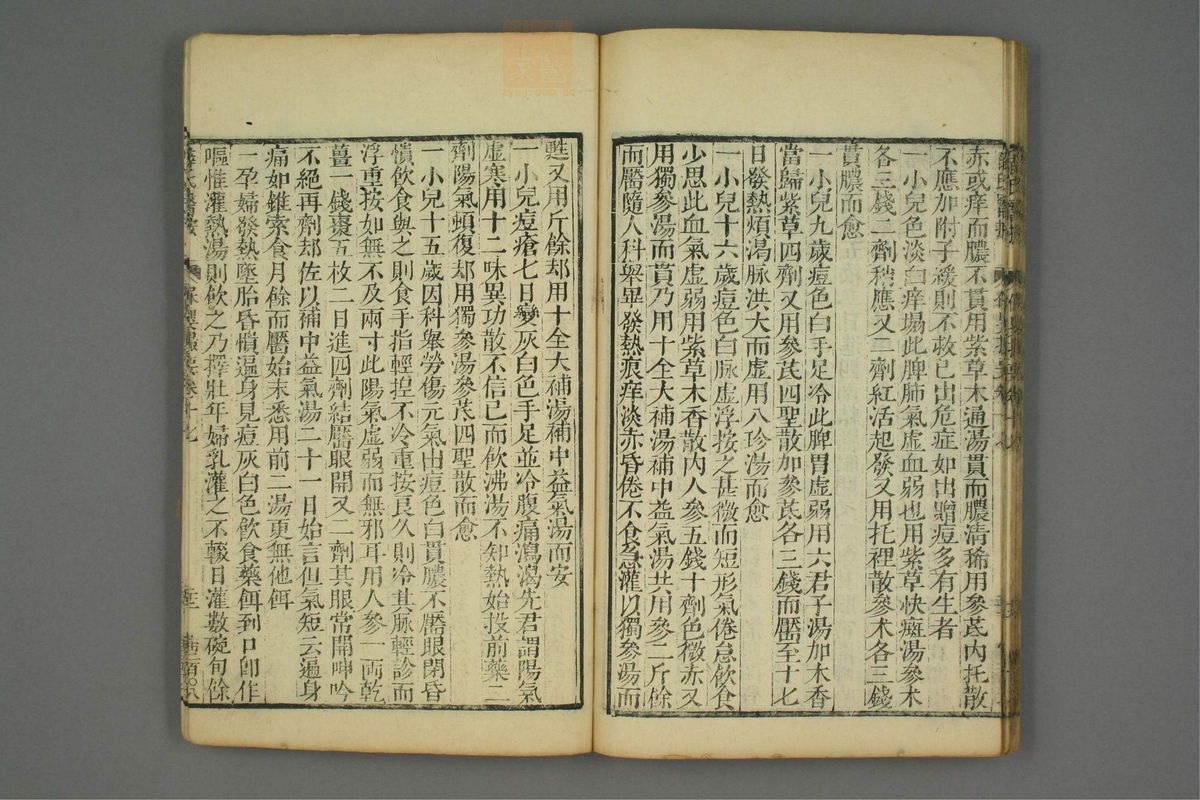 赤或痒而膿不貫用紫草木通湯貫而膿清稀用參芪內托散
不應加附子緩則不救已出危症如出贈痘多有生者
一小兒色淡白痒塌此脾肺氣虛血弱也用紫草快癍湯參朮
各三錢二劑稍應又二劑紅活起發又用托裡散參朮各三錢
貫膿而愈
一小兒九歲痘色白手足冷此脾胃虛弱用六君子湯加木香
當歸紫草四劑又用參芪四聖散加參芪各三錢而靨至十七
日發熱煩渴脉洪大而虛用八珍湯而愈
一小兒十六歲痘色白脉虛浮按之甚微而短形氣倦怠飲食
少思此血氣虛弱用紫草木香散內人參五錢十劑色微赤又
用獨參湯而貫乃用十全大補湯補中益氣湯共用參二斤餘
而靨隨人科舉畢發熱痕痒淡赤昏倦不食急灌以獨參湯而
甦又用斤餘却用十全大補湯補中益氣湯而安
一小兒痘瘡七日變灰白色手足並冷腹痛瀉渴先君謂陽氣
虛寒用十二味異功散不信已而飲沸湯不知熱始投前藥二
劑陽氣頓復却用獨參湯參芪四聖散而愈
一小兒十五歲因科舉勞傷元氣出痘色白貫膿不靨眼閉昏
憒飲食與之則食手指輕揑不冷重按良久則冷其脉輕診而
浮重按如無不及兩寸此陽氣虛弱而無邪耳用人參一兩乾
薑一錢棗五枚二日進四劑結靨眼開又二劑其眼常開呻吟
不絕再劑却佐以補中益氣湯二十一日始言但氣短云遍身
痛如錐索食月餘而靨始末悉用前二湯更無他餌
一孕婦發熱墜胎昏憒遍身見痘灰白色飲食藥餌到口即作
嘔惟灌熱湯則飲之乃擇壯年婦乳灌之不輟日灌數碗旬餘